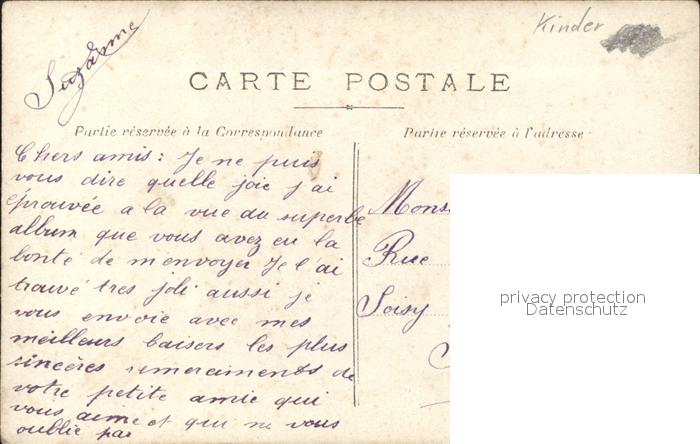 Kinder
Suzanne
CARTE POSTALE
Partie réservée à la Correspondance
Partie réservée à l'adresse
Chers amis: Je ne puis
vous dire quelle joie j'ai
éprouvée a la vue du superbe
album que vous avez eu la
bonté de m'envoyer Je l'ai
trouvé tres joli aussi je
vous envoie avec mes
meilleurs baisers les plus
sincères remerciments de
votre petite amie qui
vous aime et qui ne vous
oublie pas
Mons
Rue
Soisy
privacy protection
Datenschutz